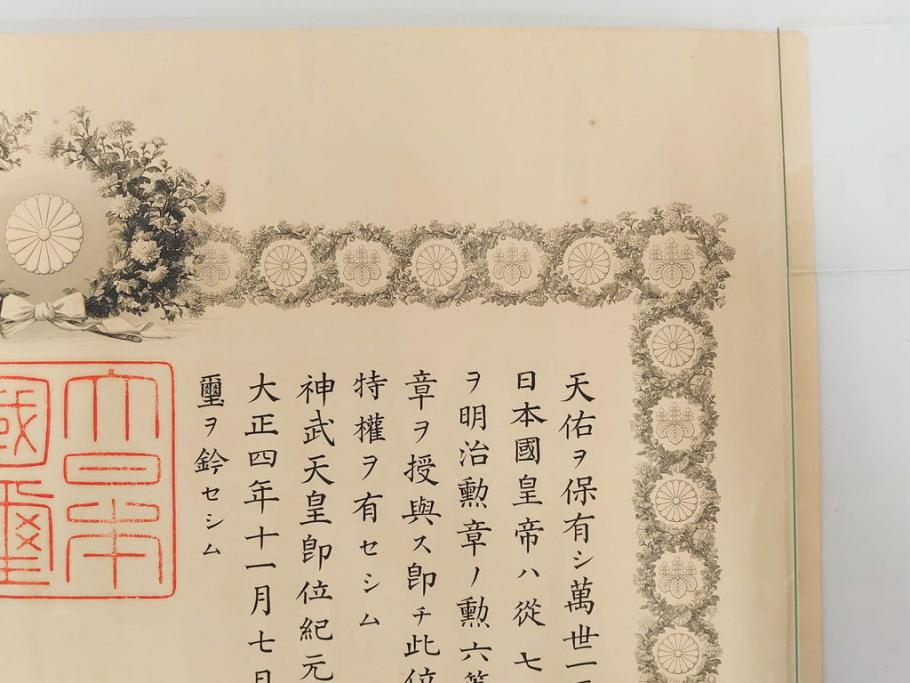 天佑ヲ保有シ萬世一
日本國皇帝ハ從七
ヲ明治勳章ノ勳六等
章ヲ授與ス卽チ此位
特權ヲ有セシム
神武天皇卽位紀元
大正四年十一月七日
璽ヲ鈐セシム
大日本
國璽